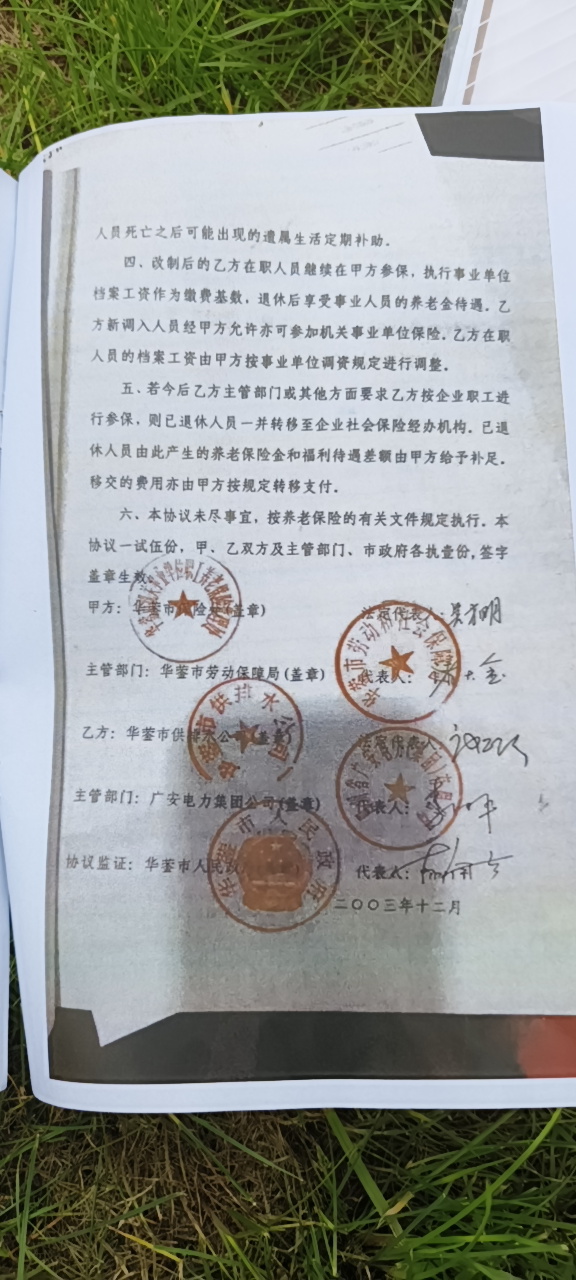 人员死亡之后可能出现的遗属生活定期补助。
四、改制后的乙方在职人员继续在甲方参保，执行事业单位
档案工资作为缴费基数，退休后享受事业人员的养老金待遇。乙
方新调入人员经甲方允许亦可参加机关事业单位保险。乙方在职
人员的档案工资由甲方按事业单位调资规定进行调整。
五、若今后乙方主管部门或其他方面要求乙方按企业职工进
行参保，则已退休人员一并转移至企业社会保险经办机构。已退
休人员由此产生的养老保险金和福利待遇差额由甲方给予补足。
移交的费用亦由甲方按规定转移支付。
六、本协议未尽事宜，按养老保险的有关文件规定执行。本
协议一试伍份，甲、乙双方及主管部门、市政府各执壹份，签字
盖章生效。
甲方：华蓥市保险(盖章) 代表人：
主管部门：华蓥市劳动保障局(盖章) 代表人：
华蓥市劳动和社会保障
乙方：华蓥市供排水公 盖章
市供排水公司
主管部门：广安电力集团公司(盖章) 代表人：
协议监证：华蓥市人民 代表人：
华蓥市人民政府
二〇〇三年十二月